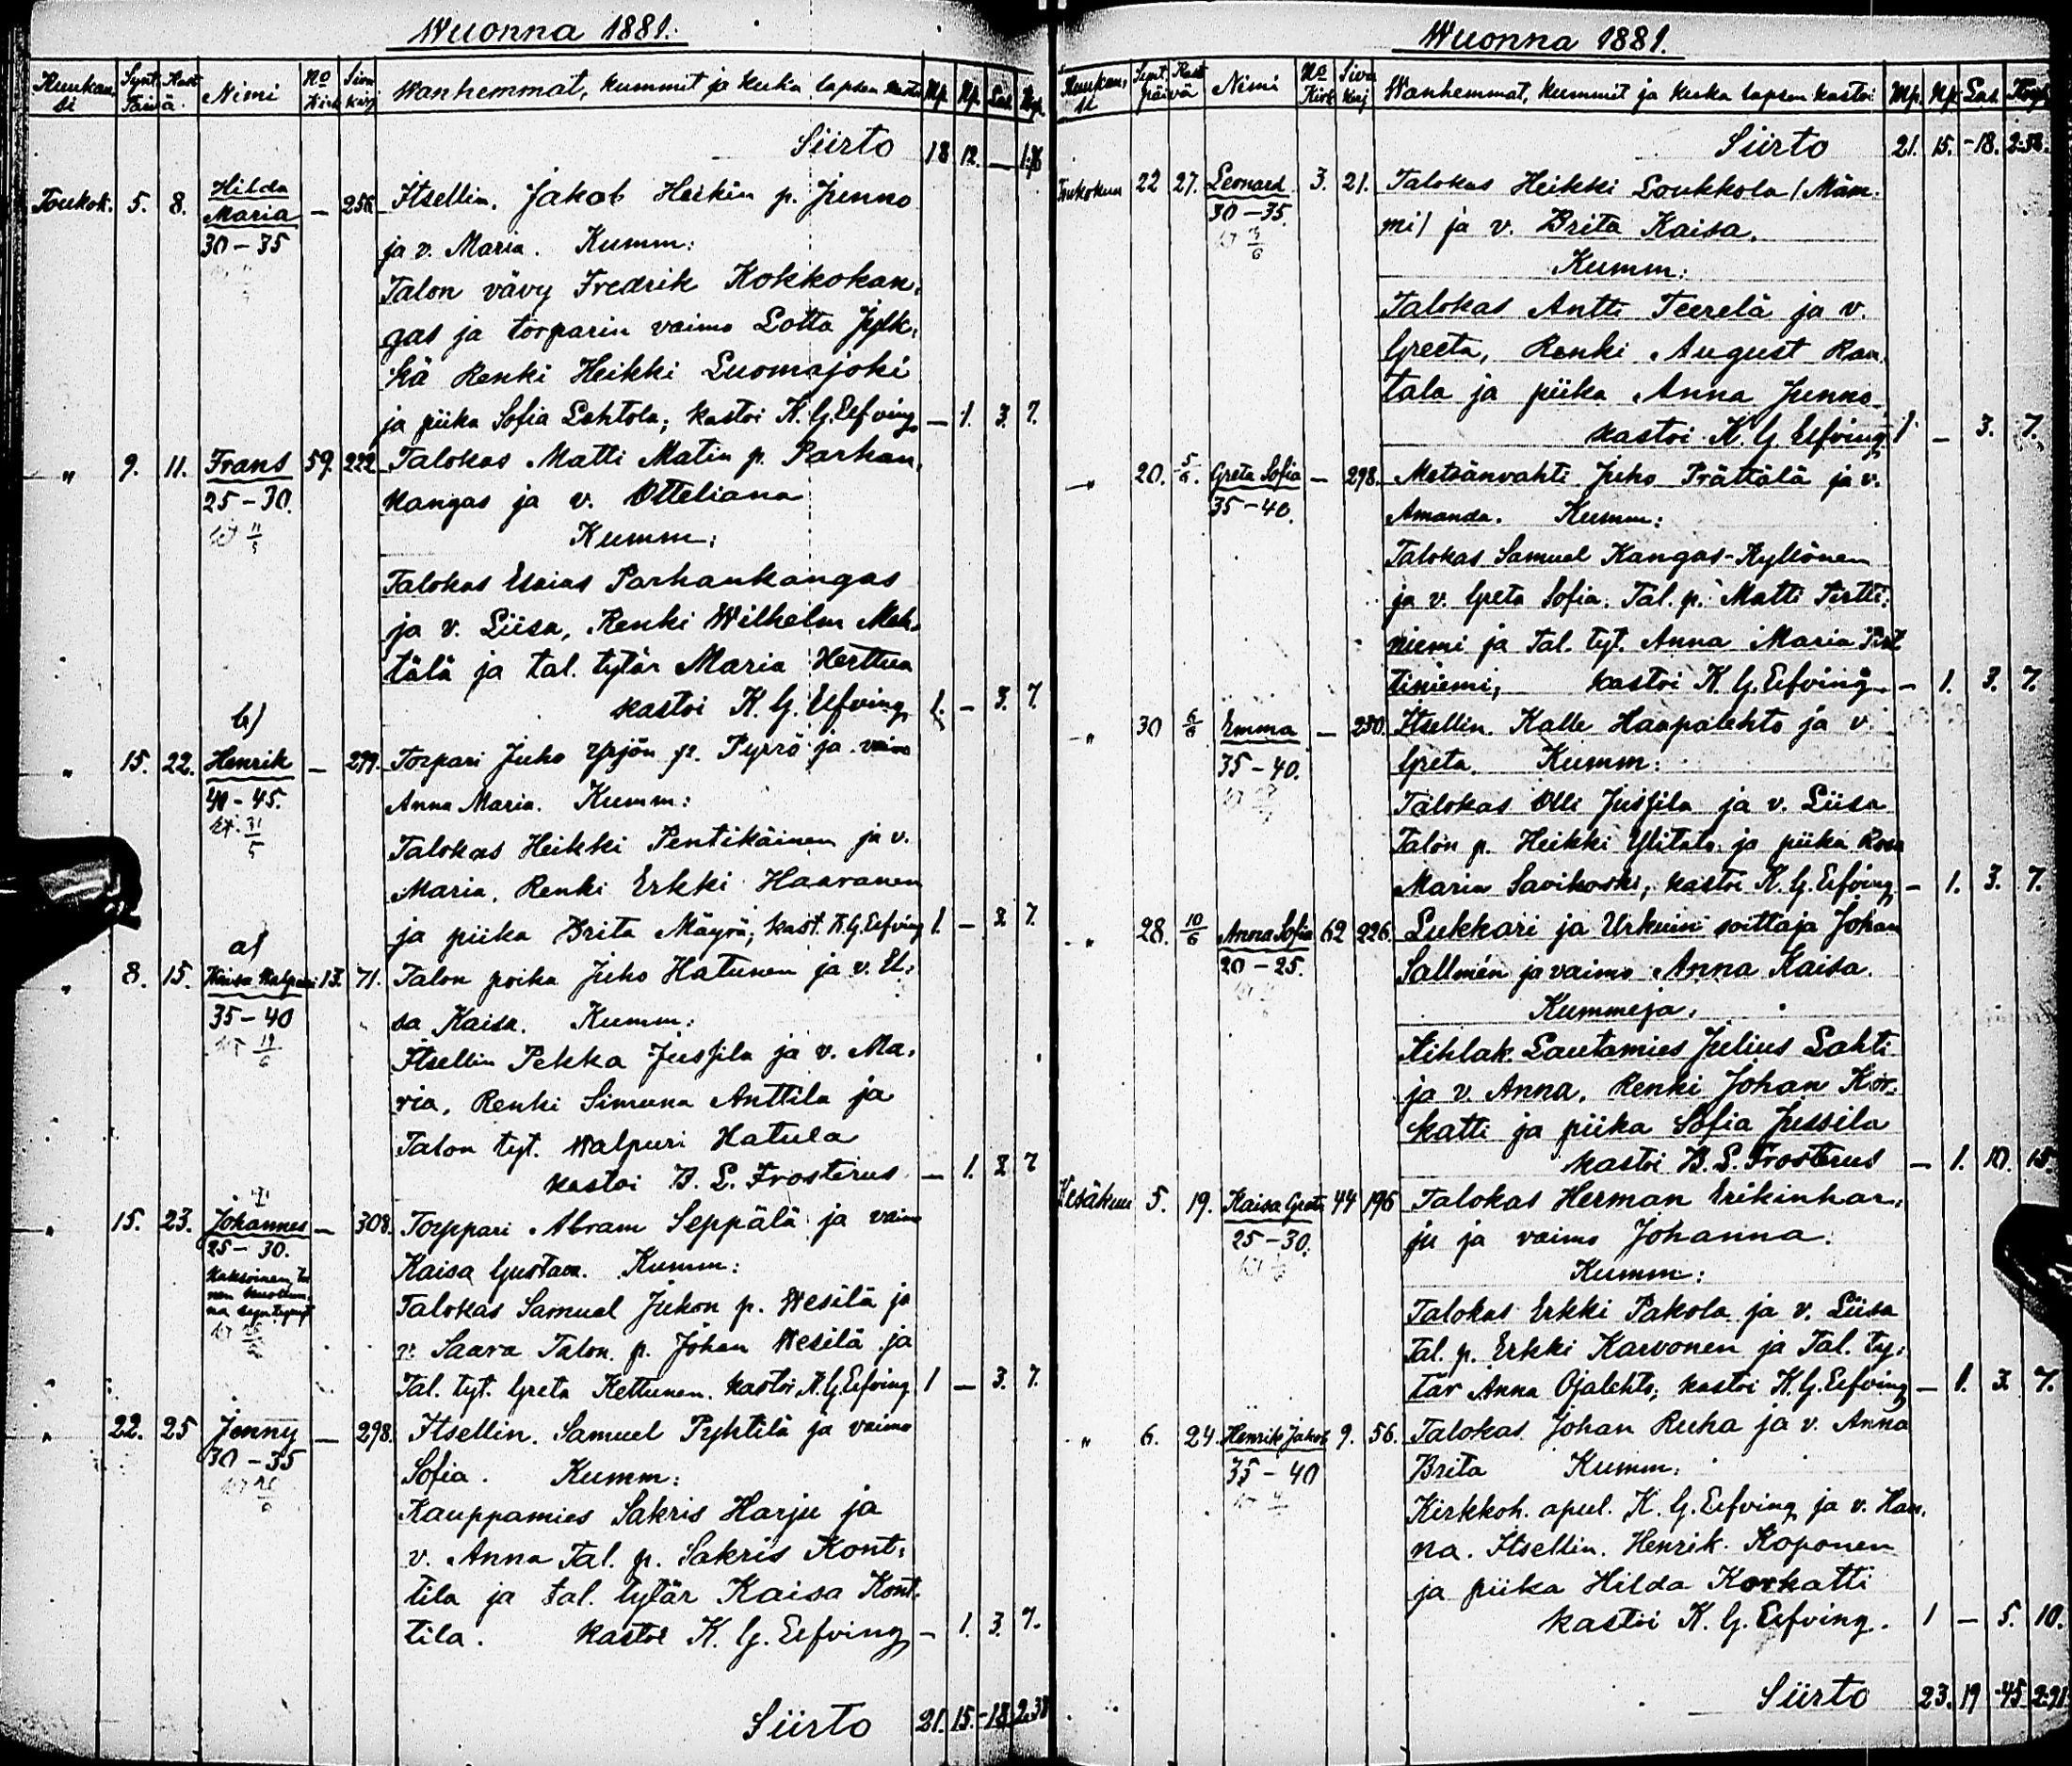 Wuonna 1881.
Kuukausi Synt. Kast. Päivä Nimi No Kirk Sivu kirj Wanhemmat, kummit ja kuka lapsen kastoi Mp. Np. Las. Köyh.
Siirto 18 12. —
Toukok. 5. 8. Hilda Maria — 256 Itsellin. Jakob Heikin p. Junno
30-35 ja v. Maria. Kumm:
Talon vävy Fredrik Kokkokan-
gas ja torparin vaimo Lotta Jylk-
kä Renki Heikki Luomajoki
ja piika Sofia Lahtola; kastoi K. G. Elfving — 1. 3. 7.
" 9. 11. Frans 59. 222 Talokas Matti Matin p. Parhan-
25-30. kangas ja v. Otteliana
Kumm:
Talokas Esaias Parhankangas
ja v. Liisa, Renki Wilhelm Meh-
tälä ja tal. tytär Maria Herttua
kastoi K. G. Elfving 1. — 3. 7.
b)
" 15. 22. Henrik — 299. Torpari Juho Yrjön p. Pyrrö ja vaimo
40-45. Anna Maria. Kumm:
Talokas Heikki Pentikäinen ja v.
Maria, Renki Erkki Haaranen
ja piika Brita Mäyrä; kast. K. G. Elfving 1. — 3. 7.
a)
" 8. 15. Kaisa Walpuri 13. 71. Talon poika Juho Hatunen ja v. El-
35-40 sa Kaisa. Kumm:
Itsellin Pekka Jussila ja v. Ma-
ria, Renki Simuna Anttila ja
Talon tyt. Walpuri Hatula
kastoi B. L. Frosterus — 1. 3. 7
" 15. 23. Johannes — 308. Torppari Abram Seppälä ja vaimo
25-30. Kaisa Gustava. Kumm:
Talokas Samuel Jukon p. Wesilä ja
v. Saara Talon p. Johan Wesilä ja
Tal. tyt. Greta Kettunen. kastoi K. G. Elfving 1 — 3. 7.
" 22. 25 Jenny — 298. Itsellin. Samuel Pyhtilä ja vaimo
30-35 Sofia. Kumm:
Kauppamies Sakris Harju ja
v. Anna Tal. p. Sakris Kont-
tila ja tal. tytär Kaisa Kont-
tila. kastoi K. G. Elfving — 1. 3. 7.
Siirto 21. 15. -18. 2.38
Wuonna 1881.
Kuukausi Synt. Kast päivä Nimi No Kirk Sivu kirj Wanhemmat, kummit ja kuka lapsen kastoi Mp. Np. Las. Köyh.
Siirto 21. 15. -18. 2.38.
Toukokuu 22 27. Leonard 3. 21. Talokas Heikki Loukkola /Mäm-
30-35. mi/ ja v. Brita Kaisa.
Kumm:
Talokas Antti Teerelä ja v.
Greeta, Renki August Ran-
tala ja piika Anna Junno
kastoi K G Elfving 1 — 3. 7.
" 20. 5/6. Greta Sofia — 298. Metsänvahti Juho Prättälä ja v.
35-40. Amanda. Kumm:
Talokas Samuel Kangas-Kyllönen
ja v. Greta Sofia. Tal. p. Matti Pirtti-
niemi ja Tal. tyt. Anna Maria Pirt-
tiniemi, kastoi K. G. Elfving. — 1. 3. 7.
" 30 6/6 Emma — 230. Itsellin. Kalle Haapalehto ja v.
35-40. Greta. Kumm:
Talokas Olli Jussila ja v. Liisa
Talon p. Heikki Ylitalo ja piika Rosa
Maria Savikoski; kastoi K. G. Elfving — 1. 3. 7.
" 28. 10/6 Anna Sofia 62 226. Lukkari ja Urkuin soittaja Johan
20-25. Sallmén ja vaimo Anna Kaisa.
Kummeja.
Kihlak. Lautamies Julius Lahti
ja v. Anna, Renki Johan Kor-
katti ja piika Sofia Jussila
kastoi B. L. Frosterus — 1. 10. 15
Kesäkuu 5. 19. Kaisa Greta 44 196 Talokas Herman Erikinhar-
25-30. ju ja vaimo Johanna.
Kumm:
Talokas Erkki Pakola ja v. Liisa
Tal. p. Erkki Karvonen ja Tal. ty-
tär Anna Ojalehto; kastoi K. G. Elfving — 1. 3. 7.
" 6. 24. Henrik Jakob 9. 56. Talokas Johan Ruha ja v. Anna
35-40 Brita Kumm:
Kirkkoh. apul. K. G. Elfving ja v. Han-
na. Itsellin. Henrik Koponen
ja piika Hilda Korkatti
kastoi K. G. Elfving. 1 — 5. 10.
Siirto 23. 19 -45. 2.91.